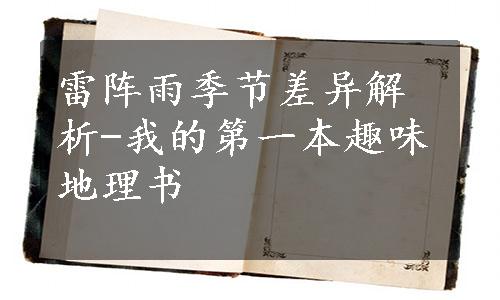 雷阵雨季节差异解
析-我的第一本趣味
地理书